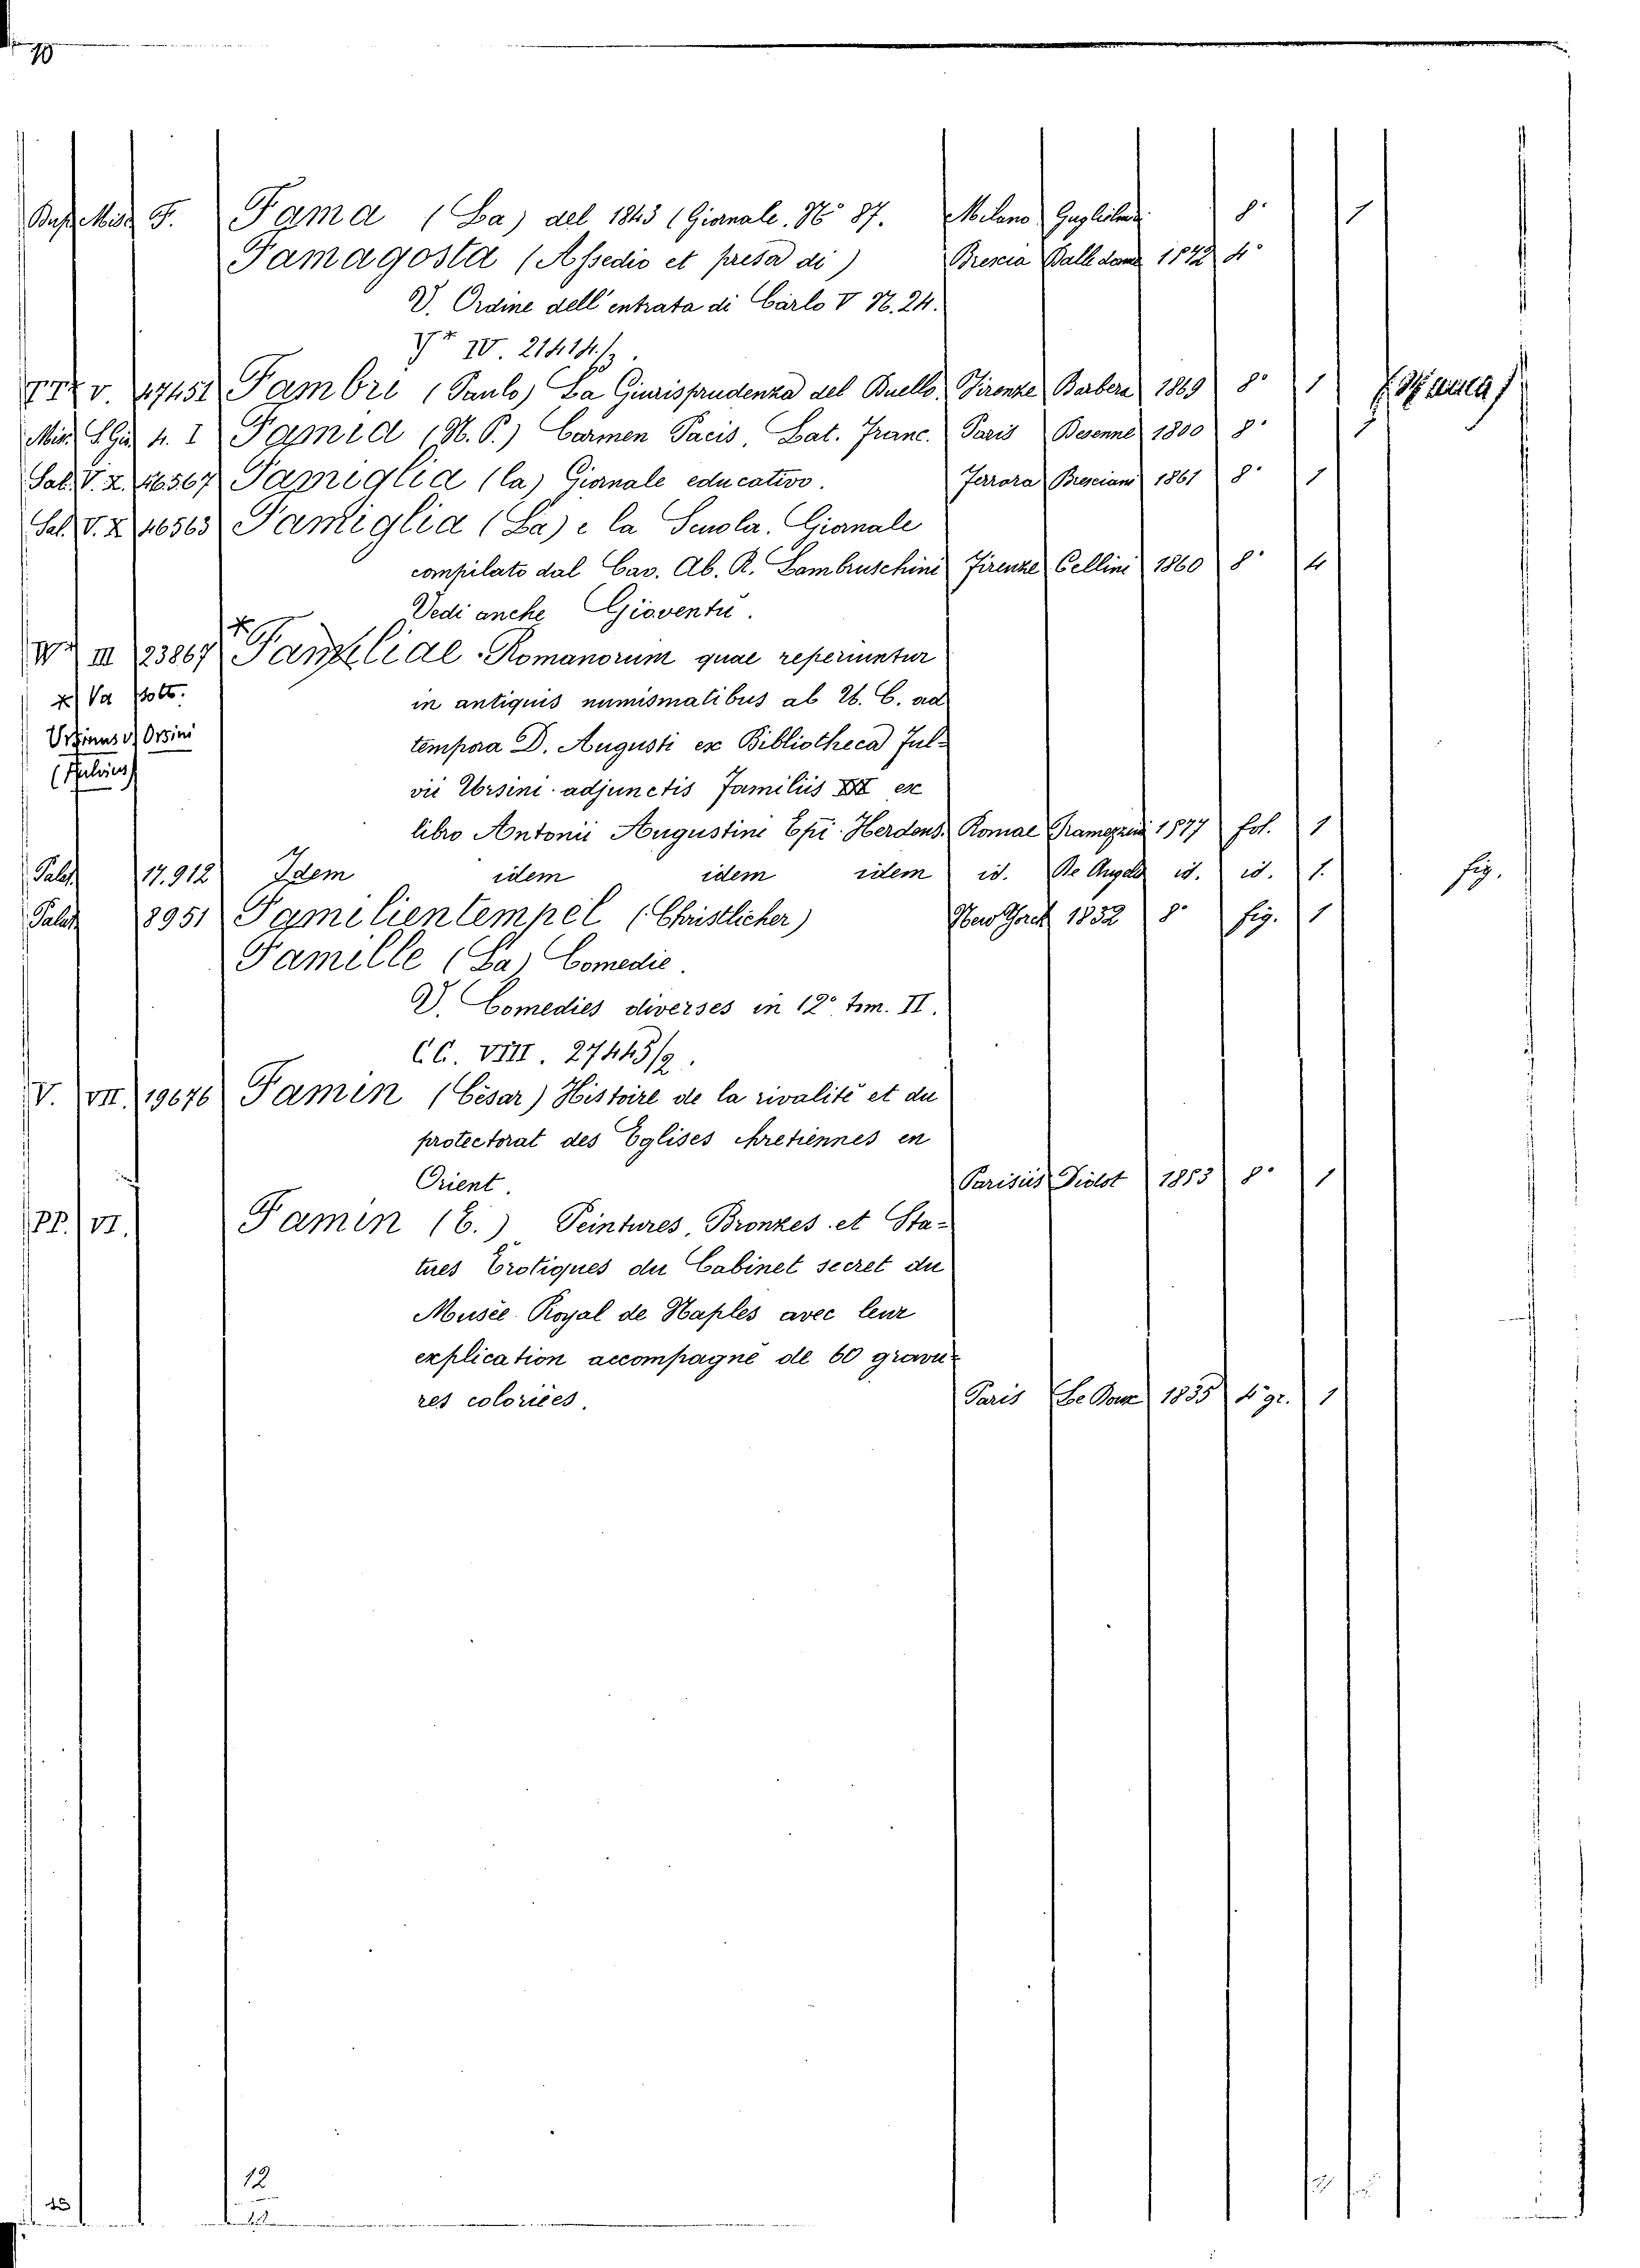 10
F. Fama (La) del 1843 (Giornale. N° 87. Milano 8° 1
Famagosta (Assedio et presa di) Brescia 4°
V. Ordine dell'entrata di Carlo V N. 24.
IV. 21414/
V 47451 Fambri (Paulo) La Giurisprudenza del Duello. Firenze Barbera 1869 8° 1
4. I Famid (N. P.) Carmen Pacis, Lat. Franc. Paris Besenne 1800 8°
Sal. V. X. 46567 Famiglia (la) Giornale educativo. Ferrara Bresciani 1861 8° 1
Sal. V. X 46563 Famiglia (La) e la Scuola. Giornale
compilato dal Cav. Ab. R. Lambruschini Firenze Cellini 1860 8° 4
Vedi anche Gioventù.
III 23867 Familiae Romanorum quae reperiuntur
x) Va sotto. in antiquis numismatibus ab U. C. ad
Ursinus v) Orsini tempora D. Augusti ex Bibliotheca Ful-
(Fulvius) vii Ursini adjunctis Familiis XXX ex
libro Antonii Augustini Epi Herdens. Romae 1577 fol. 1
Palat. 17.912 Idem idem idem idem id. De Angelis id. id. 1. fig.
Palat 8951 Familientempel (Christlicher) New Yorck 1832 8° fig. 1
Famille (La) Comedie.
V. Comedies diverses in 12° tom. II.
CC. VIII. 27445/9.
V. VII. 19676 Famin (César) Histoire de la rivalité et du
protectorat des Eglises chretiennes en
Orient. Parisiis Didot 1853 8° 1
PP. VI. Famin (C.) Peintures, Bronzes et Sta-
tues Erotiques du Cabinet secret du
Musée Royal de Naples avec leur
explication accompagné de 60 gravu-
res coloriées. Paris 1835 4° gr. 1
12